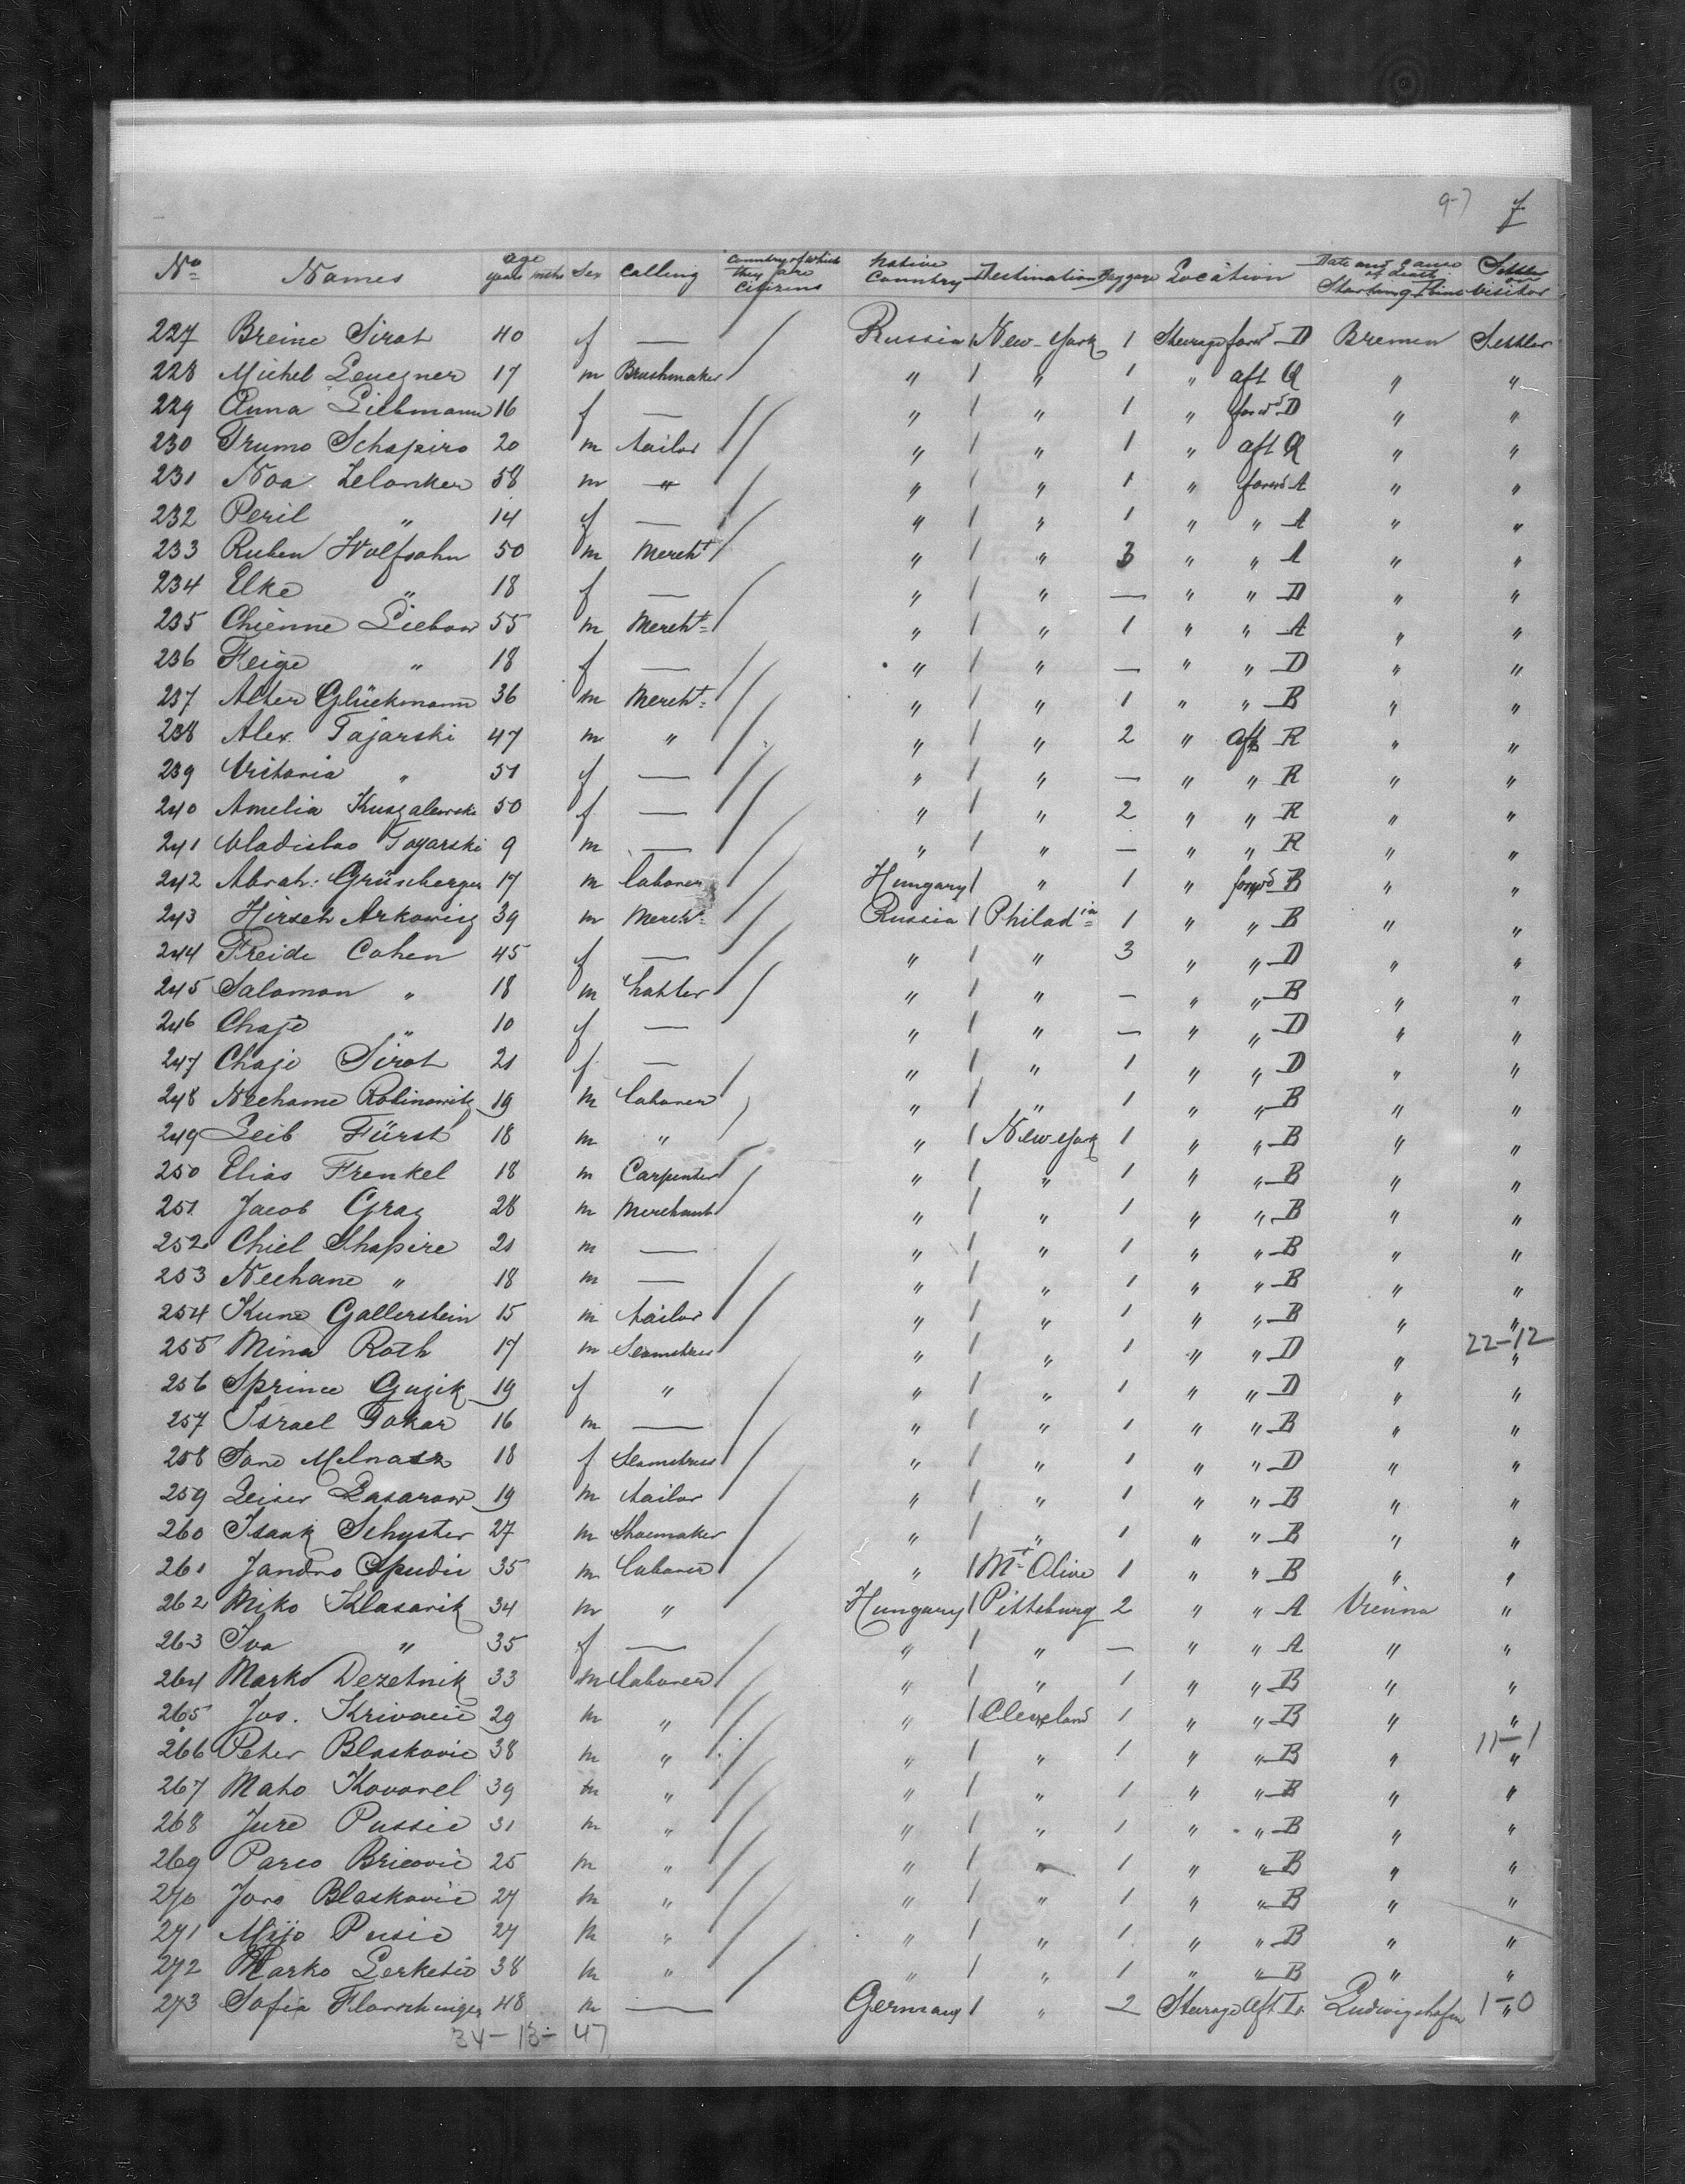 9-7 f
No Names age years mths Sex Calling Country of which they are Citizens Native Country Destination Baggage Location Date and cause of death Starting Point Settler or Visitor
227 Breine Sirot 40 f — Russia 1 New-York 1 Steerage forwd D Bremen Settler
228 Michel 17 m Brushmaker " 1 " 1 " aft Q " "
229 Anna Liebmann 16 f — " 1 " 1 " forwd D " "
230 Trumo Schapiro 20 m tailor " 1 " 1 " aft Q " "
231 Noa Zelonker 58 m " " 1 " 1 " forwd A " "
232 Peril " 14 f — " 1 " 1 " " A " "
233 Ruben Wolfsohn 50 m Mercht " 1 " 3 " " A " "
234 Elke " 18 f — " 1 " — " " D " "
235 Chienne Liebow 55 m Mercht " 1 " 1 " " A " "
236 Feige " 18 f — " 1 " — " " D " "
237 Alter Glückmann 36 m Mercht " 1 " 1 " " B " "
238 Alex. Tajarski 47 m " " 1 " 2 " aft R " "
239 Victoria " 51 f — " 1 " — " " R " "
240 Amelia Kuszalewska 50 f — " 1 " 2 " " R " "
241 Vladislao Tayarski 9 m — " 1 " — " " R " "
242 Abrah: Grünberger 17 m laborer Hungary 1 " 1 " forwd B " "
243 Hirsch Arkowicz 39 m Mercht Russia 1 Philadia 1 " " B " "
244 Freide Cohen 45 f — " 1 " 3 " " D " "
245 Salomon " 18 m hatter " 1 " — " " B " "
246 Chaje " 10 f — " 1 " — " " D " "
247 Chaje Sirot 21 f — " 1 " 1 " " D " "
248 Nechame Rabinowitz 19 m laborer " 1 " 1 " " B " "
249 Leib Fürst 18 m " " 1 New-York 1 " " B " "
250 Elias Frenkel 18 m Carpenter " 1 " 1 " " B " "
251 Jacob Graz 28 m Merchant " 1 " 1 " " B " "
252 Chiel Shapire 21 m — " 1 " 1 " " B " "
253 Nechane " 18 m — " 1 " 1 " " B " "
254 Kune Gallerstein 15 m tailor " 1 " 1 " " B " "
255 Mina Roth 17 m Seamstress " 1 " 1 " " D " " 22-12
256 Sprince Guzik 19 f " " 1 " 1 " " D " "
257 Israel Tokar 16 m — " 1 " 1 " " B " "
258 Sane Melnasz 18 f Seamstress " 1 " 1 " " D " "
259 Leiser Lasarow 19 m tailor " 1 " 1 " " B " "
260 Isaak Schyster 27 m Shoemaker " 1 " 1 " " B " "
261 Jandro Spudic 35 m laborer " 1 Mt Olive 1 " " B " "
262 Miko Klasarik 34 m " Hungary 1 Pittsburg 2 " " A Vienna "
263 Iva " 35 f — " 1 " — " " A " "
264 Marko Dezetnik 33 m laborer " 1 " 1 " " B " "
265 Jos. Krivacic 29 m " " 1 Cleveland 1 " " B " "
266 Peter Blaskovic 38 m " " 1 " 1 " " B " " 11-1
267 Mato Kovorel 39 m " " 1 " 1 " " B " "
268 Jure Pussic 31 m " " 1 " 1 " " B " "
269 Parco Bricovic 25 m " " 1 " 1 " " B " "
270 Joro Blaskovic 27 m " " 1 " 1 " " B " "
271 Mijo Pusic 27 m " " 1 " 1 " " B " "
272 Marko Lerketic 38 m " " 1 " 1 " " B " "
273 Sofia 48 m — Germany 1 " 2 Steerage aft Ludwigshafen " 1-0
34-13- 47